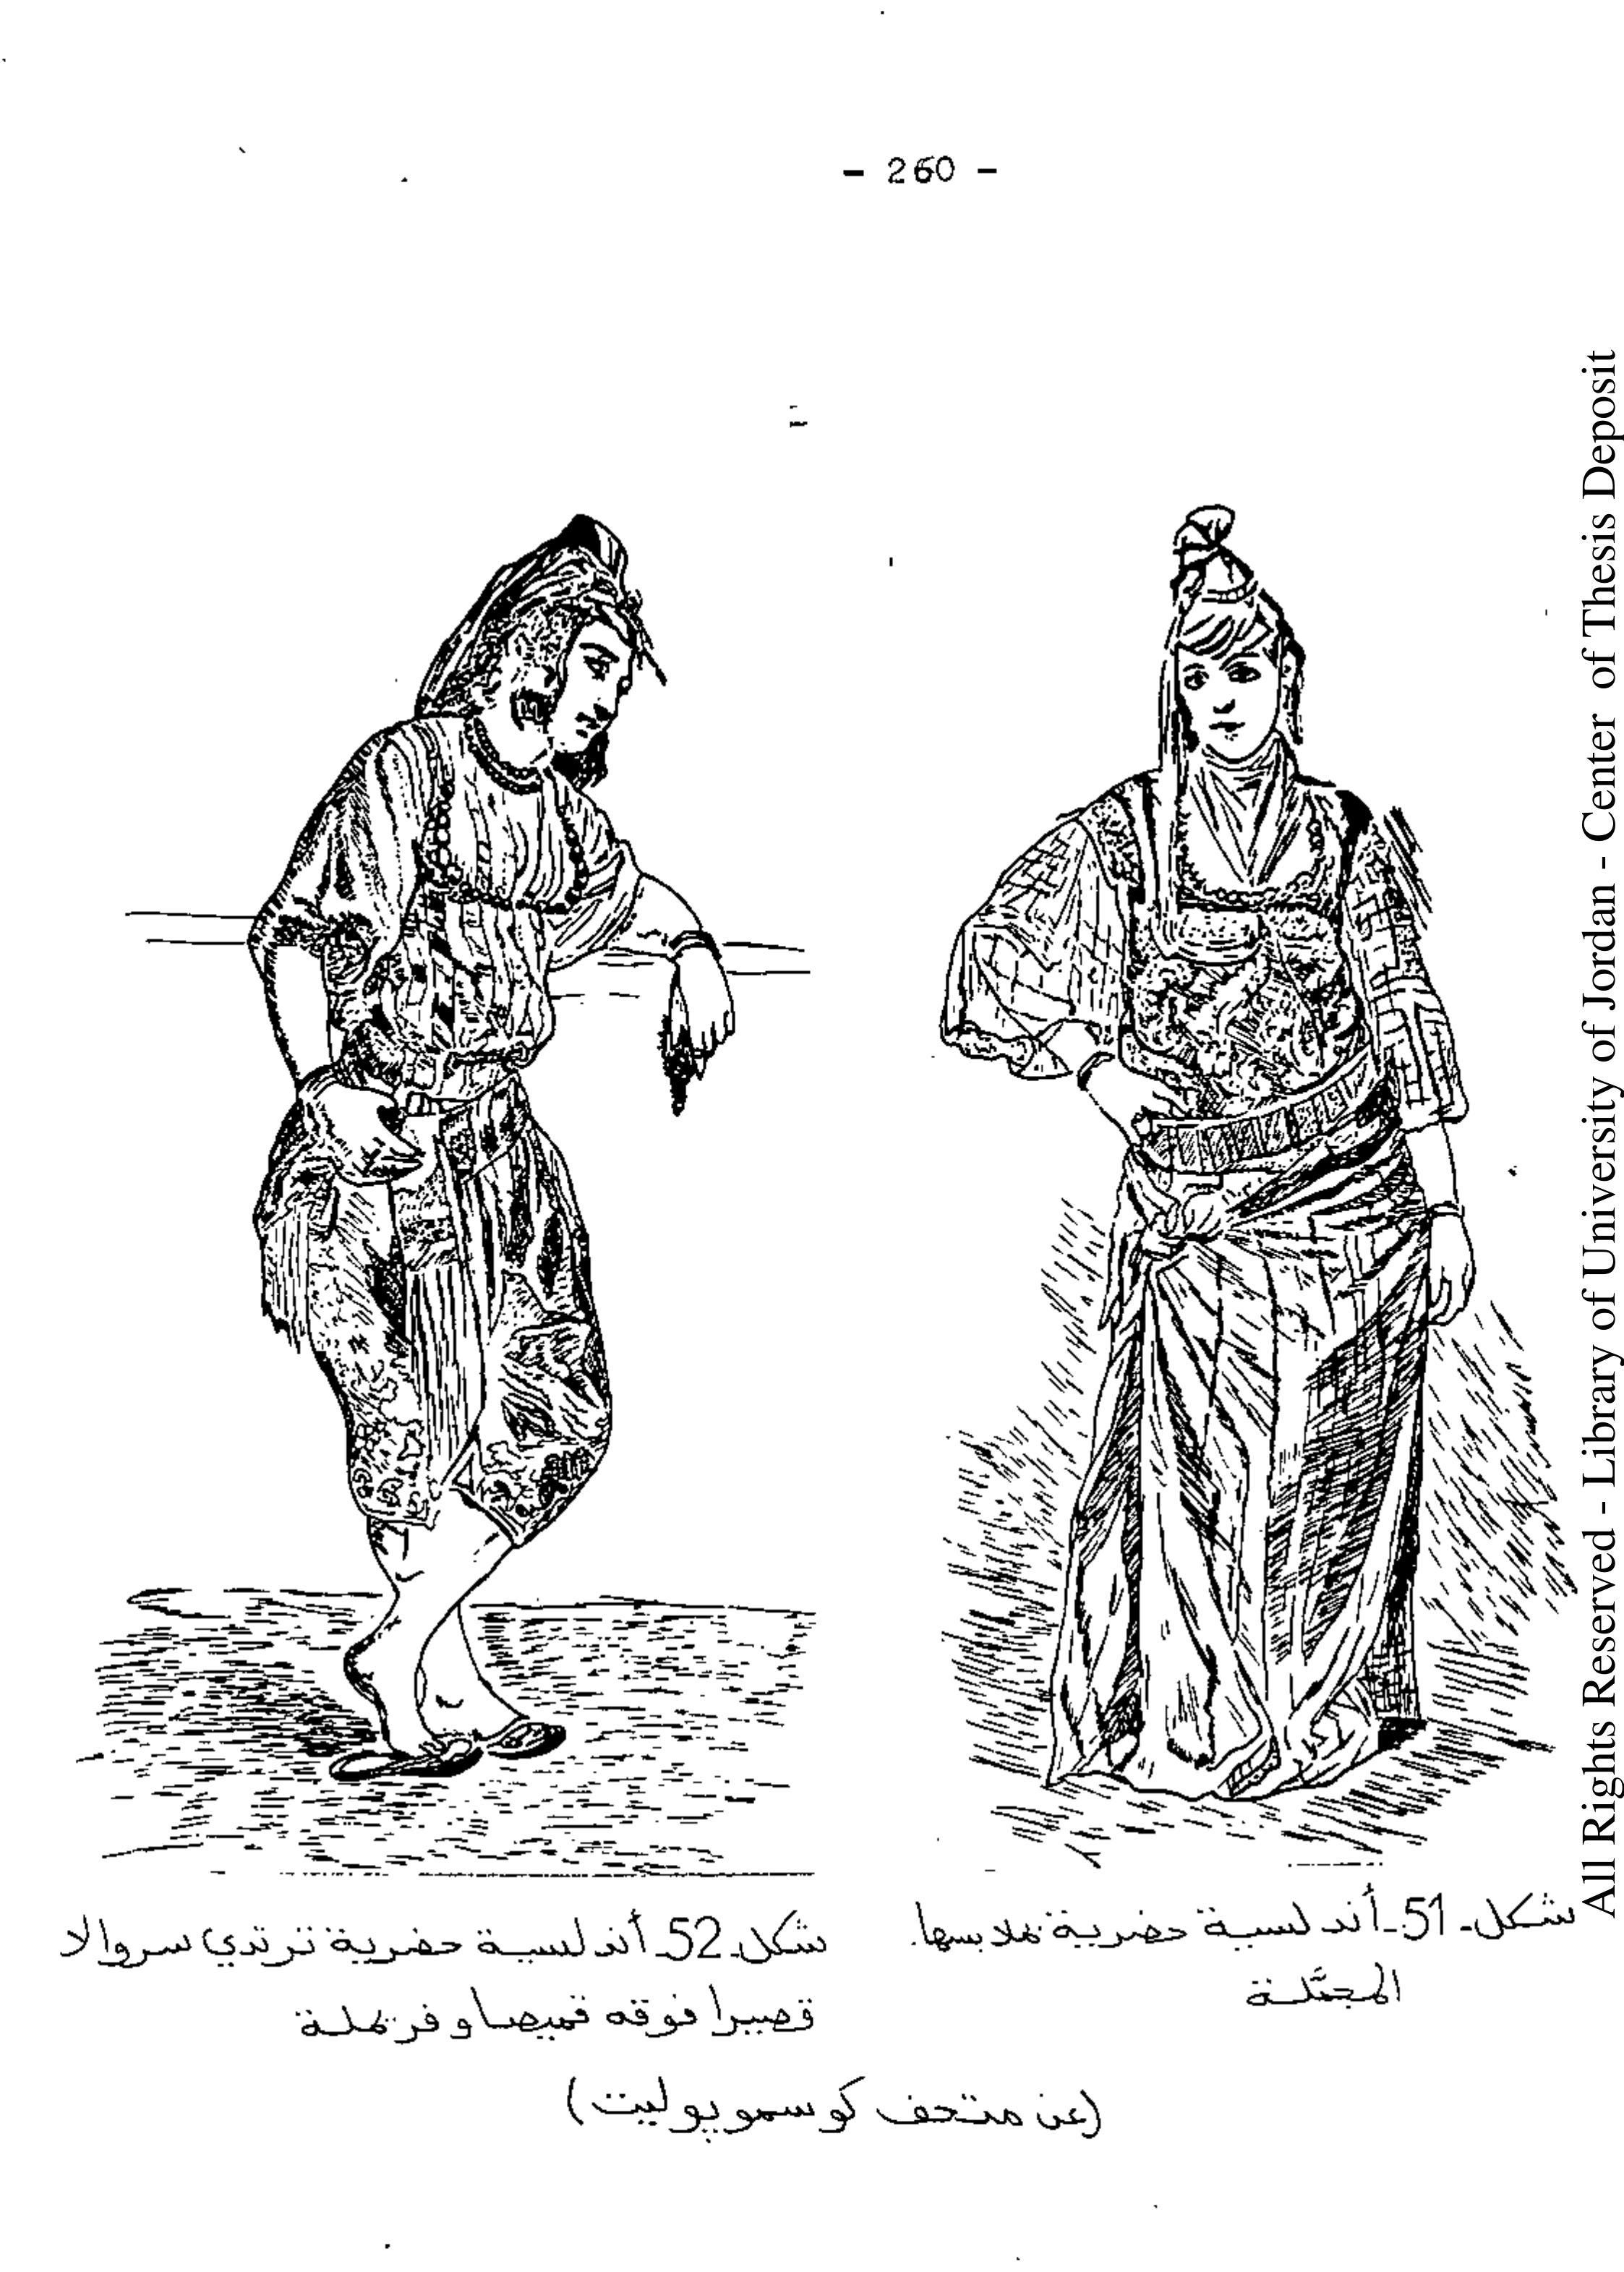 - 260 -
شكل-51-أندلسية حضرية بملابسها
المجمَّلة
شكل-52-أندلسية حضرية ترتدي سروالا
قصيرا فوقه قميصا و فرملة
(عن متحف كوسموبوليت)
All Rights Reserved - Library of University of Jordan - Center of Thesis Deposit